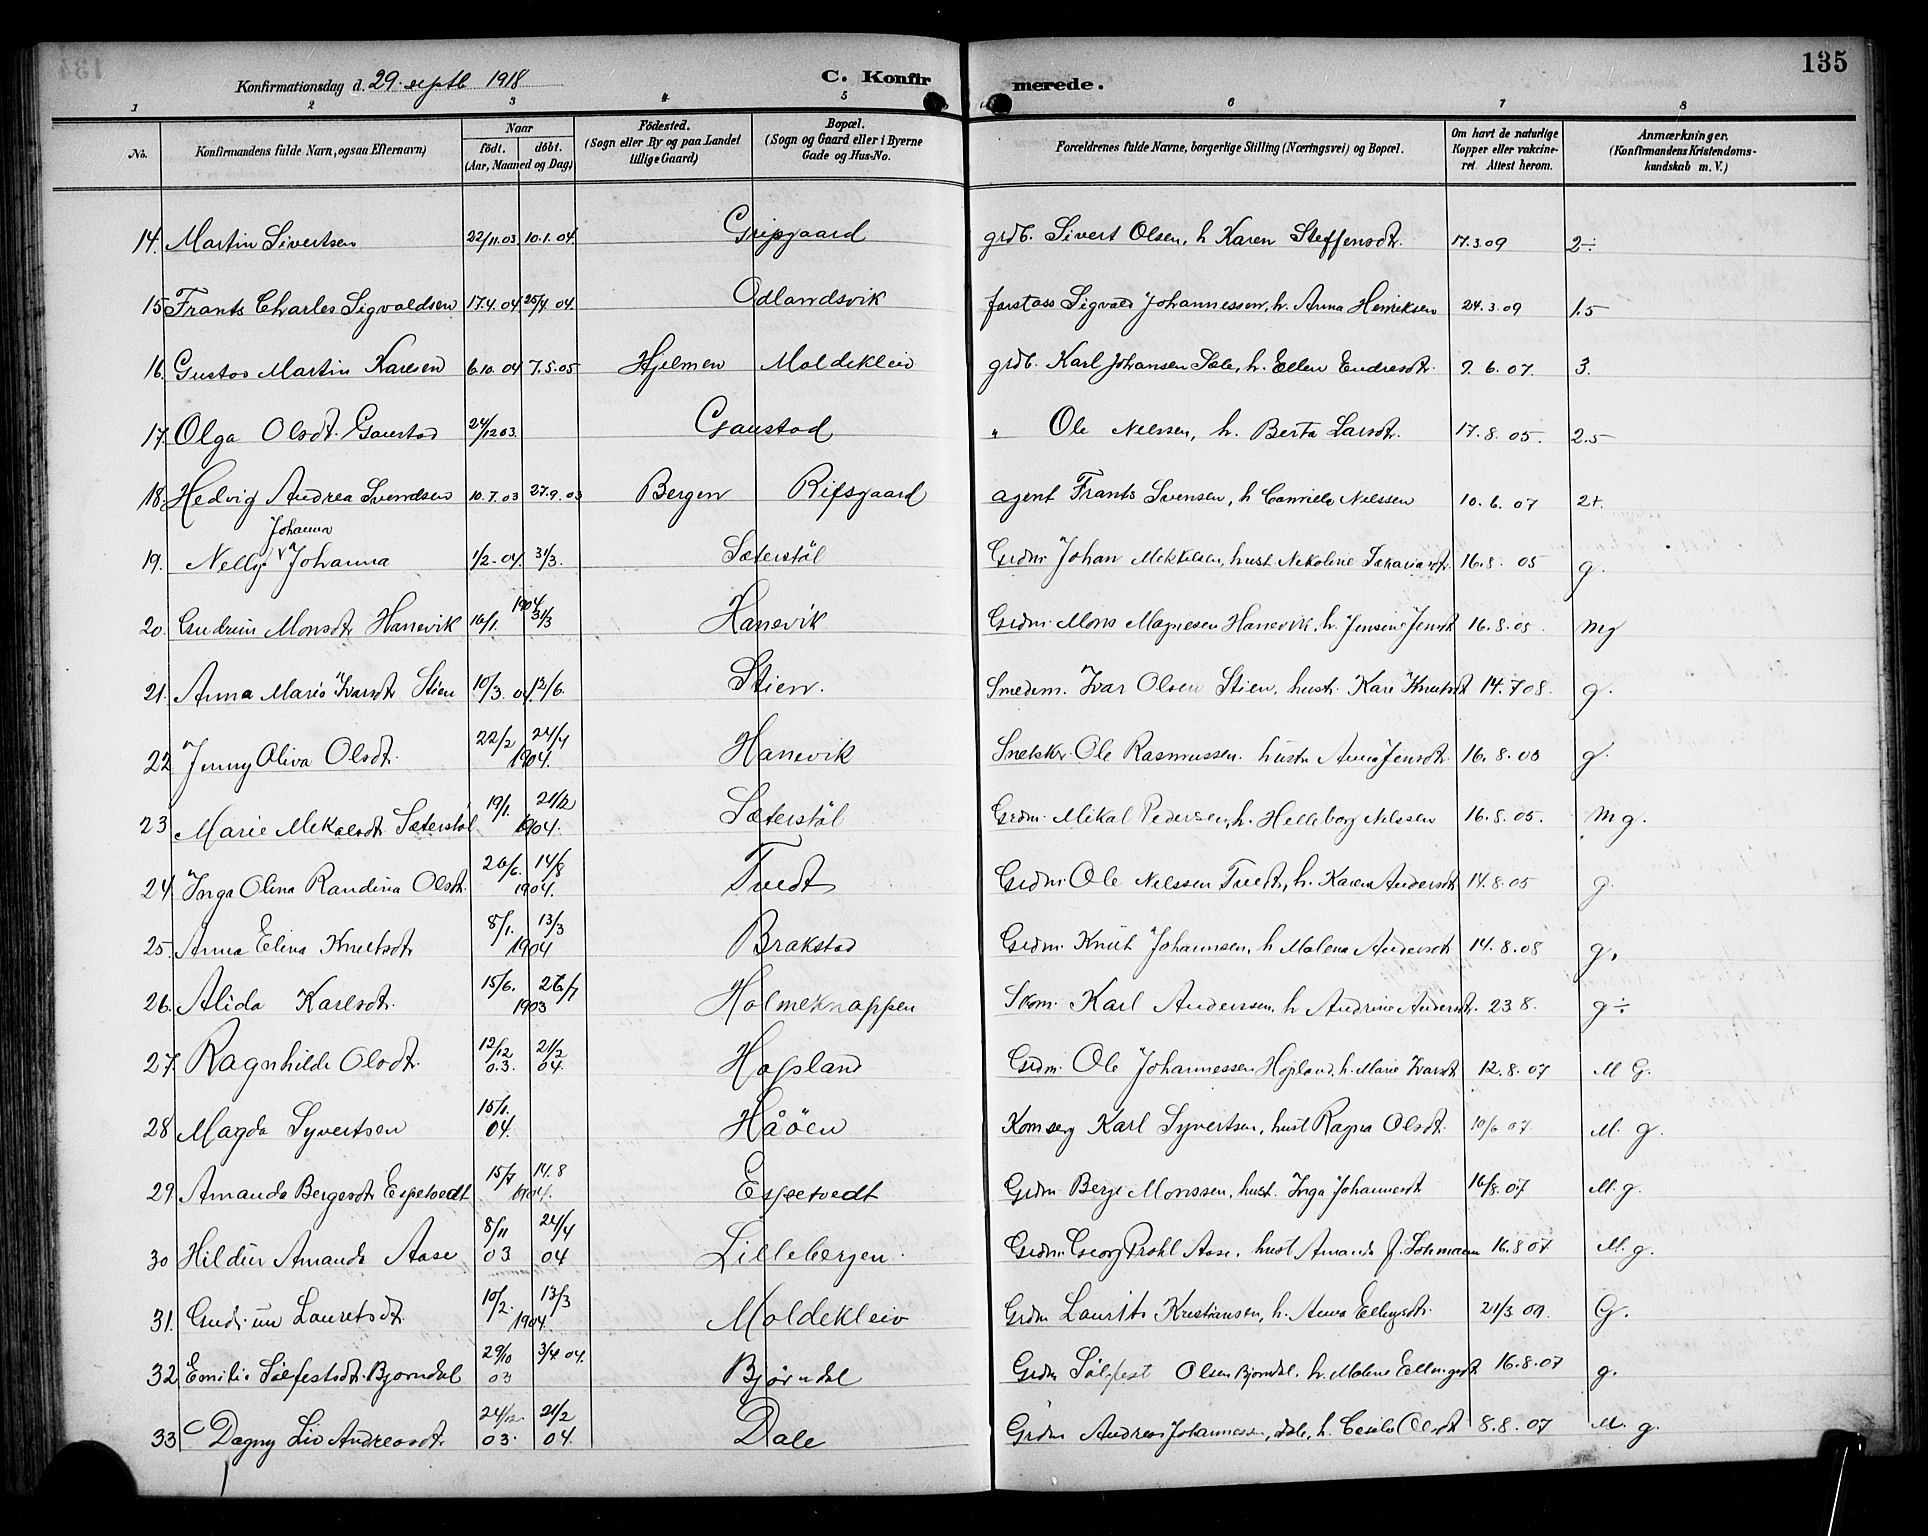 135
Konfirmationsdag d. 29. septb 1918 C. Konfirmerede.
1 2 3 4 5 6 7 8
No. Konfirmandens fulde Navn, ogsaa Efternavn) Naar födt. döbt. (Aar, Maaned og Dag) Födested. (Sogn eller By og paa Landet tillige Gaard) Bopæl. (Sogn og Gaard eller i Byerne Gade og Hus-No. Forældrenes fulde Navne, borgerlige Stilling (Næringsvei) og Bopæl. Om havt de naturlige Kopper eller vakcineret. Attest herom. Anmærkninger. (Konfirmandens Kristendomskundskab m. V.)
14. Martin Sivertsen 22/11.03 10.1.04 Gripsgaard grdb. Sivert Olsen, h Karen Steffensdtr. 17.3.09 2÷
15 Frants Charles Sigvaldsen 17.4.04 25/4.04. Odlandsvik forstass Sigvald Johannessen, h. Anna Henriksen 24.3.09 1.5
16. Gustav Martin Karlsen 6.10.04 7.5.05 Hjelmen Moldekleiv grdb. Karl Johansen Dale, h. Ellen Endresdtr. 7.6.07. 3.
17. Olga Olsdt. Gaustad 24/12 03. Gaustad " Ole Nelssen, h. Berta Larsdtr. 17.8.05. 2.5
18. Hedvig Andrea Svendsen 10.7.03 27.9.03 Bergen Rifsgaard agent Frants Svensen, h Nelssen 10.6.07 2+.
Johanna
19. Nelly Johanna 1/2-04. 31/3. Sæterstöl Grdm. Johan Mekkelsen, hust. Nekoline 16.8.05 g.
20. Gudrun Monsdtr Hanevik 16/1. 1904 31/3 Hanevik Grdm. Mons Magnesen Hanevik, h. Jensine Jensdt 16.8.05. Mg
21. Anna Marie Ivarsdtr Stien 10/3. 04. 12/6. Stien. Smedem. Ivar Olsen Stien, hustr. Kari Knutsdt 14.7 08. g.
22 Jenny Oliva Olsdt. 22/2 24/4 1904. Hanevik Snekker Ole Rasmussen. hustr Anna Jensdtr. 16.8.05 g.
23 Marie Mekalsdt Sæterstöl 19/1. 21/2 1904. Sæterstöl Grdm. Mikal Pedersen, h. Helleborg Nelssen 16.8.05. Mg.
24. Inga Olina Randina Olsdt. 26/6. 14/8 1904. Tvedt Grdm. Ole Nelssen Tvedt, h. Karen Andersdt 14.8.05 g.
25. Anna Elina Knutsdtr 8/1. 13/3 1904 Brakstad Grdm. Knut Johannsen, h Malena Andersdt 14.8.08 g.
26. Alida Karlsdt. 15/6. 26/7 1903 Holmeknappen Skom. Karl Anderssen, h Andrine Andersdt. 23.8. g÷
27. Ragnhilde Olsdt. 12/12 0.3. 21/2 04. Hopland Grdm. Ole Johannessen Hopland, h. Marie Ivarsdt. 12.8.07 M G.
28 Magda Syvertsen 15/1. 04. Håöen Komserg Karl Syvertsen, hust Ragna Olsdt. 10/6 07. M. g.
29. Amanda Bergesdt. Espetvedt 15/7 14.8 1904. Espetvedt Grdm Berge Monssen, hust. Inga Johannesdt 16/8.07 M. g.
30 Hildur Amanda Aase 8/11 03 24/4 04 Lillebergen. Grdm. Georg Prahl Aase. hust Amanda f. 16.8 07. M. g.
31. Gudrun Lauretsdt 10/2. 13/3 1904. Moldekleiv Grdm Laurits Kristiansen, h. Anna Ellingsdt. 21/3 09. G.
32 Emilie Sölfestsdt. Bjorndal 29/10 03 3/4 04. Bjørndal Grdm Sölfest Olsen Bjorndal. h. Malene Ellingsdt 16.8.07 g.
33 Dagny Liv Andreasdt. 24/12. 03. 21/2 04. Dale Grdm Andreas Johannessen, Dale, h. Cesilie Olsdt 8.8.07 M. g.